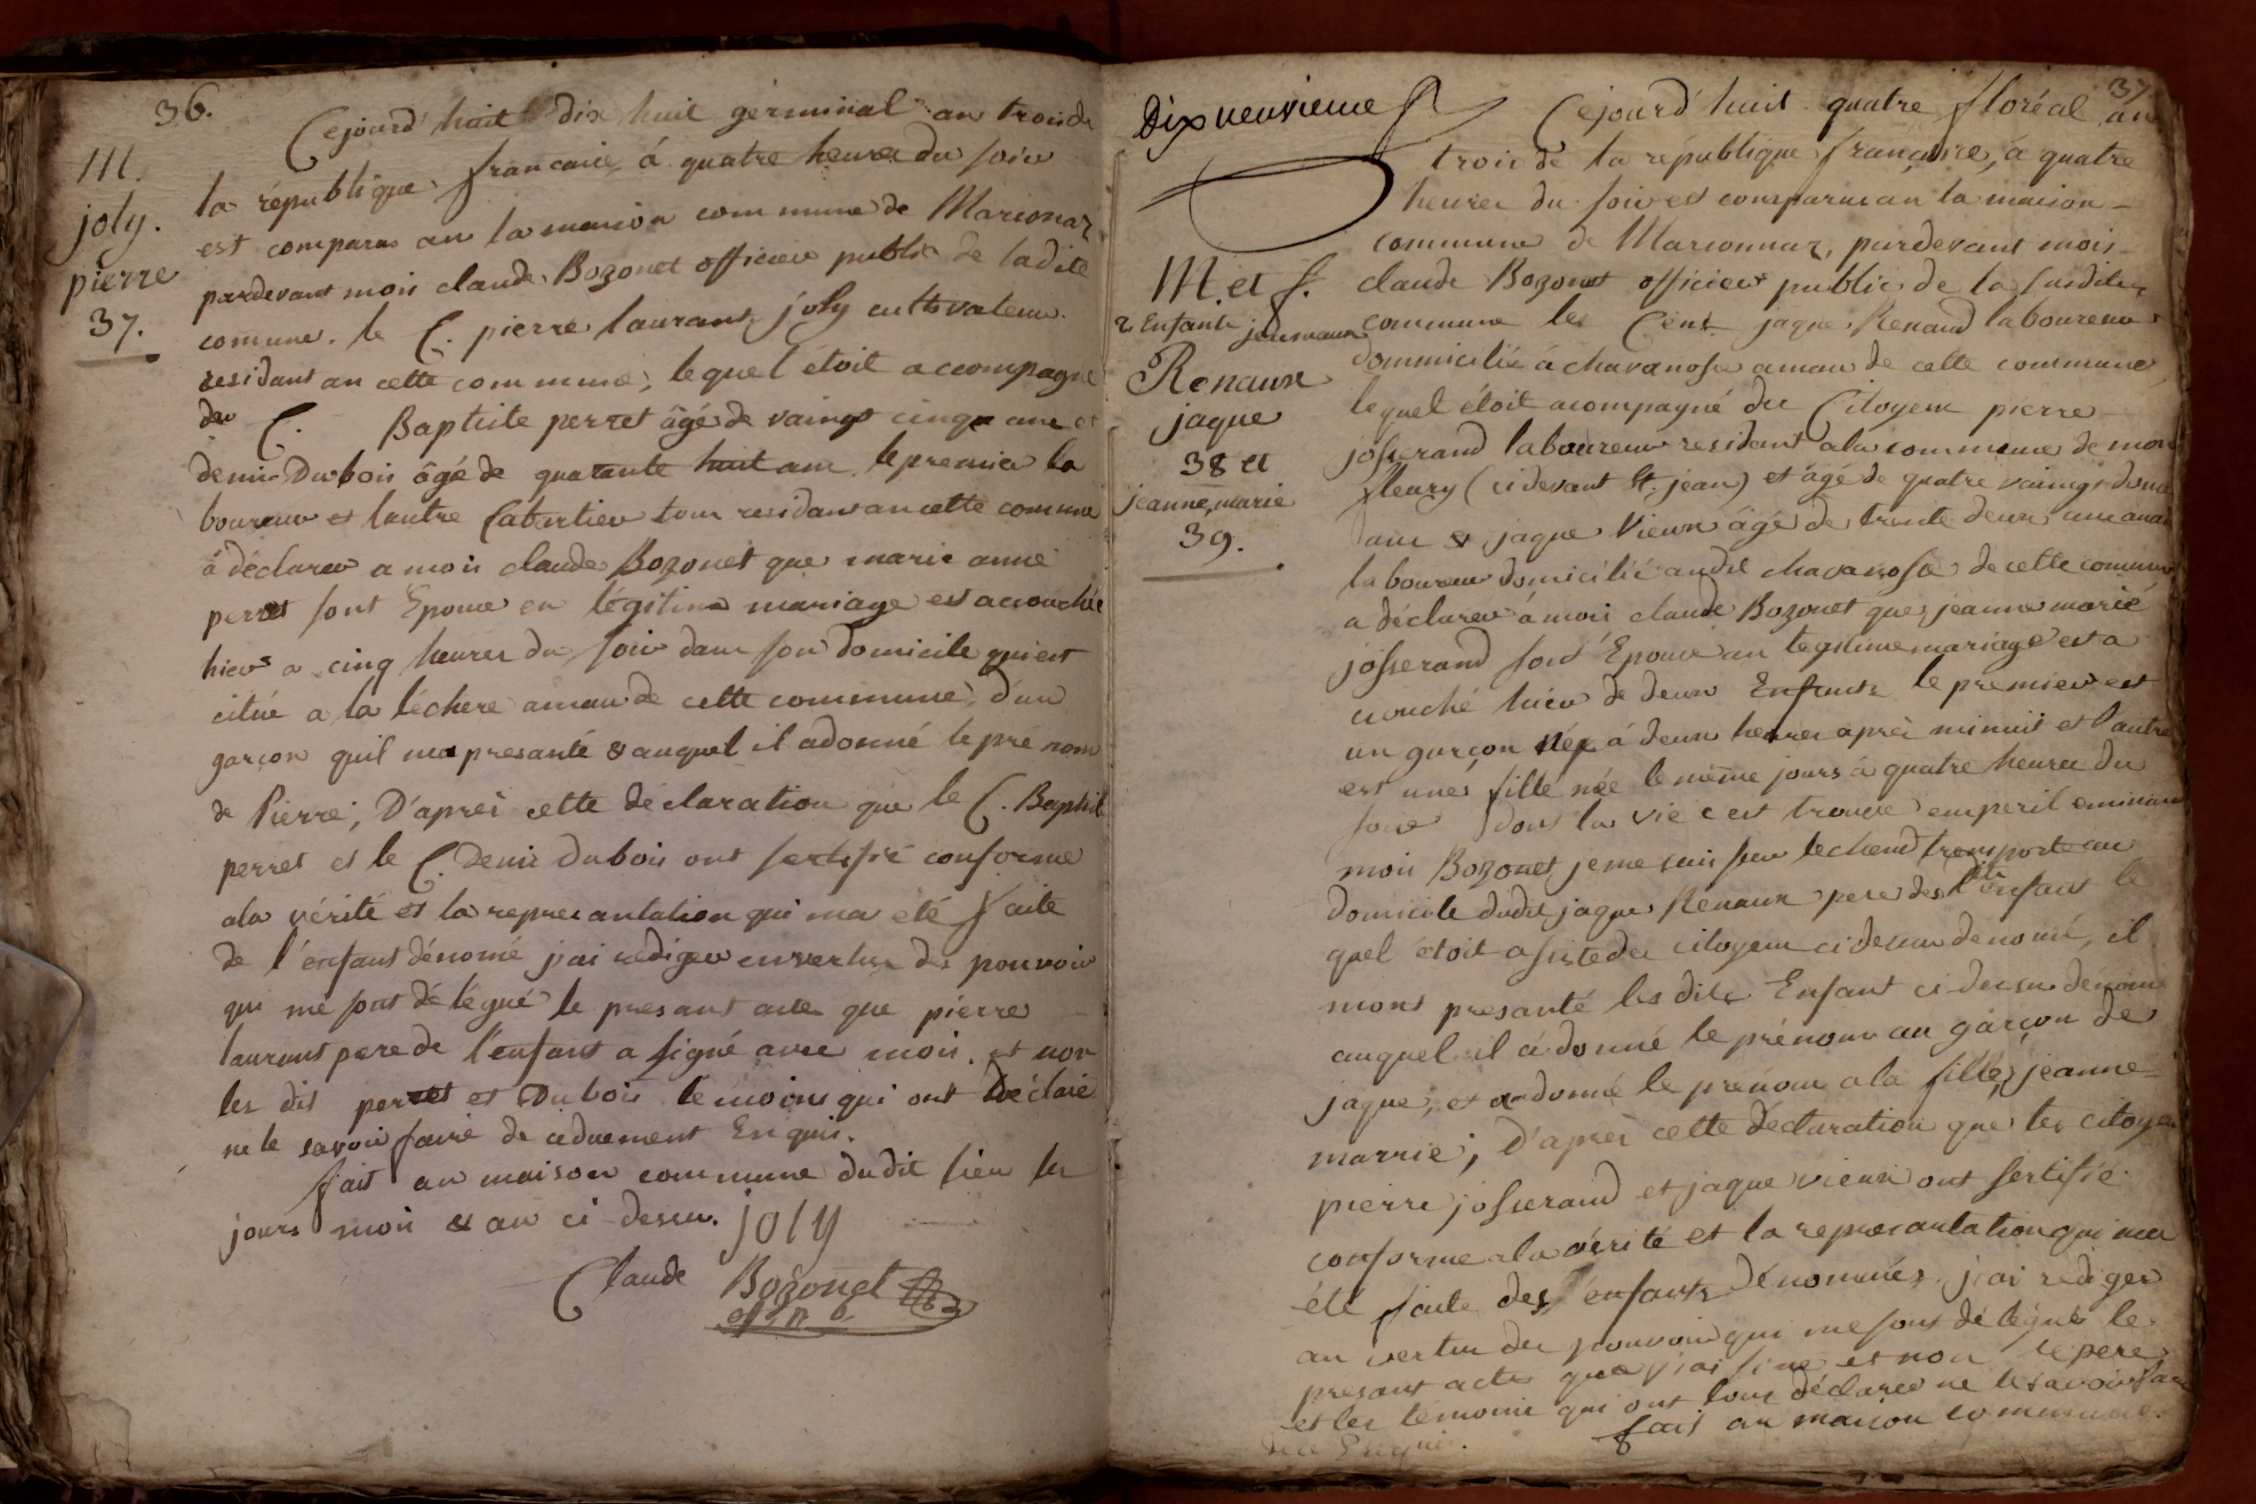 36.
M.
joly.
pierre
37.
Cejourd'huit dix huit germinal an trois de
la république francaise, á quatre heures du soir
est comparus an la maison commune de Marsonaz
pardevant mois claude Bozonet officier public de ladite
comune. le C. pierre laurans joly cultivateur
residant an cette commune, lequel étoit accompagné
des C. Baptiste perret âgé de vaingt cinque ans et
denis Dubois âgé de quarante huit ans le premier la
boureur et lautre Cabartier tous residans an cette comune
á déclarer a mois claude Bozonet que marie anne
perret sont Epouse en légitime mariage est acouchée
hiers a cinq heures du soir dans son domicile qui est
citué a la léchere amau de cette commune, d'un
garçon quil ma presanté & auquel il adonné le pré nom
de Pierre; D'aprés cette déclaration que le C. Baptiste
perret et le C. Denis Dubois ont sertifié conforme
ala vérité et la represantation qui ma été faite
de l'énfant dénomé j'ai rediger en vertus des pouvoir
qui me sont délégué le presant acte que pierre
laurant pere de l'énfant a signé avec mois. et non
les dis perret et Dubois témoins qui ont déclaré
ne le savoir faire de ceduement Enquis.
fait an maison commune dudit lieu les
jours mois & an ci-dessus. joly
Claude Bozonet
off. p. b.
37
Dix neuvieme f.
M. et f.
2 Enfants jeumeaux
Renaux
jaque
38 et
jeanne, marie
39.
Cejourd'huit quatre floréal an
trois de la république française, á quatre
heures du soir est comparus an la maison
commune de Marsonnaz, pardevant mois
claude Bozonet officier public de la susdite
commune les Cens. jaque Renaud laboureur
dommicilié á chavanosse amau de cette commune,
lequel étoit acompagné des Citoyens pierre
josserand laboureur residant ala commune de mon
fleury (cidevant St. jean) et âgé de quatre vaingt douze
ans & jaque Vieux âgé de trente deux ans aussi
laboureur domicilié audit chavanosse de cette commune
a déclarer á mois claude Bozonet que jeanne marie
josserand sont Epouse an legitime mariage est a
couché hiér de deux Enfants le premier est
un garçon née á deux heures aprés minuit et l'autre
est unes fille née le même jours á quatre heures du
soire dont la vie cest trouvé emperil eminant
mois Bozonet je me suis sur lechend transporté au
domicile dudit jaque Renaux pere des dits enfant le
quel étoit assisté des citoyens cidessus denomé, il
mons presanté les dits Enfant ci dessus dénomé
auquel il á donné le prénom au garçon de
jaque, et a donné le prénom ala fille, jeanne
marrie; D'aprés cette déclaration que les citoyen
pierre josserand et jaque vieux ont sertifié
conforme ala vérité et la represantation qui ma
été faite des énfants dénommés j'ai rediger
an vertus des pouvoir qui me sont délégués le
presant acte que j'ai siné et non le pere
et les témoins qui ont tous déclarer ne le savoir faire
fait an maison commune